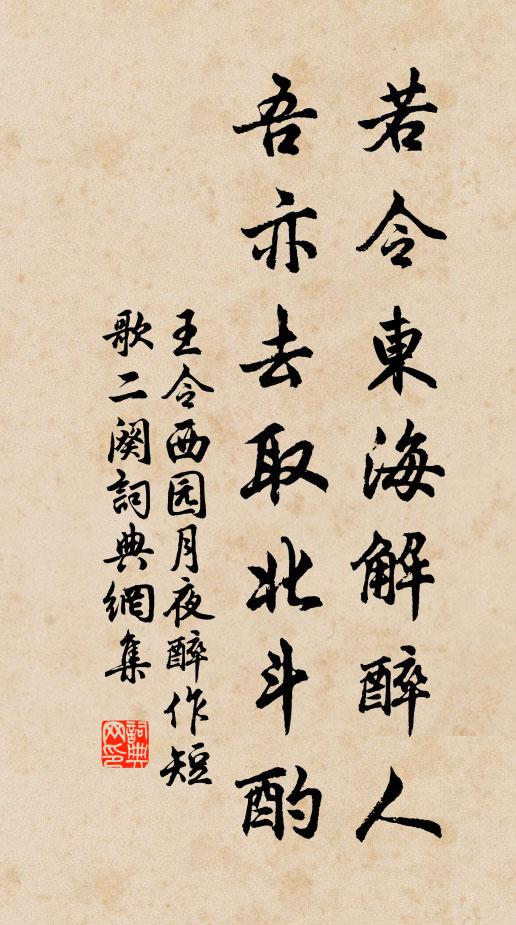 若令東海解醉人
吾亦去取北斗酌
王令西园月夜醉作短
歌二闋詞典網集
詞典网印